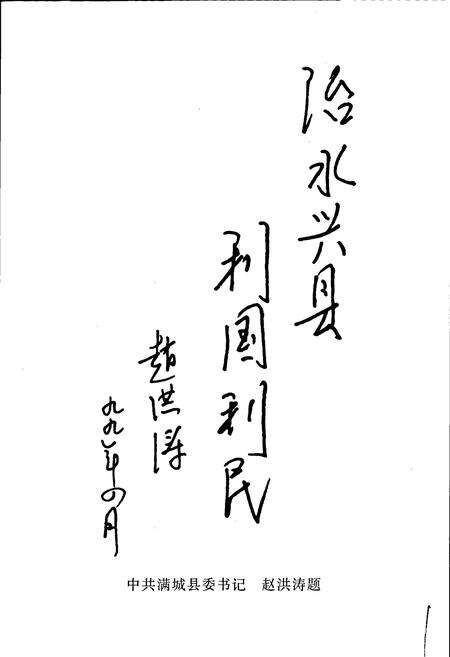 治水兴县
利国利民
趙洪涛
九九年四月
中共满城县委书记 赵洪涛题